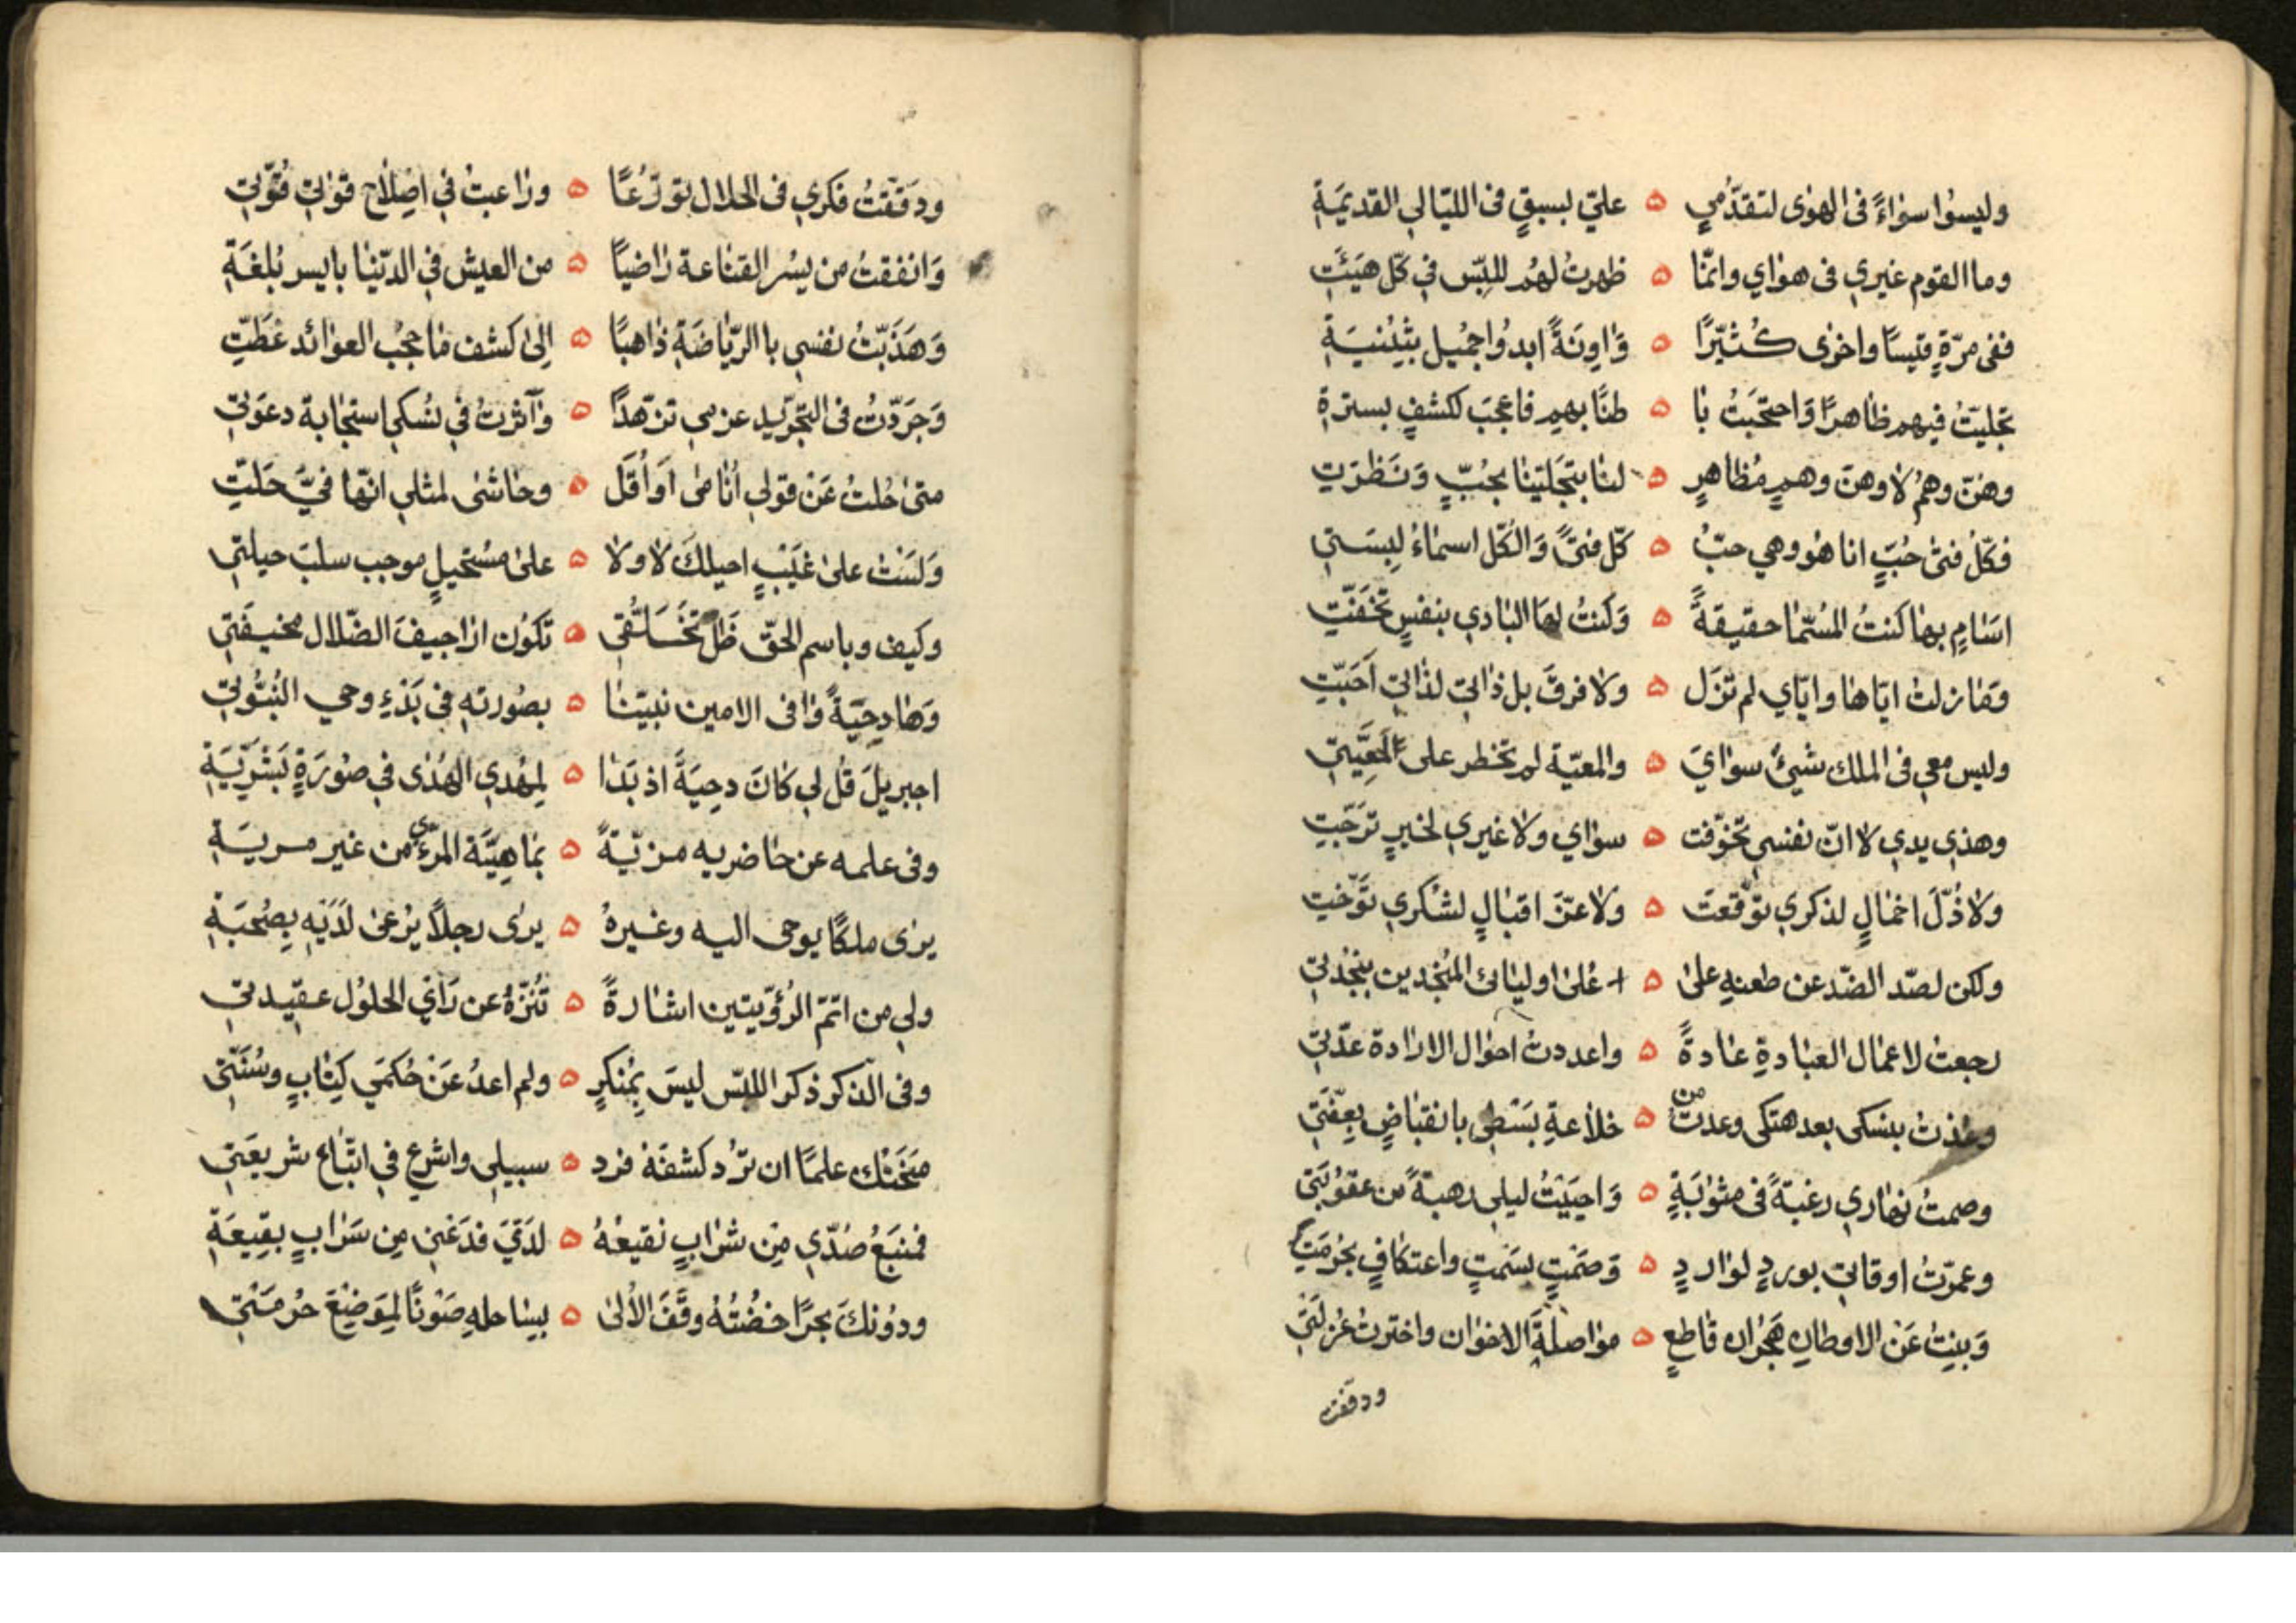 وليسوا سواءً فى الهوى لتقدّمي ه عليّ لسبقٍ فى الليالي القديمَةِ
وما القوم غيري فى هواي وانمّا ه ظهرتُ لهم للبّس في كلّ هيَئَتِ
ففى مرّةٍ قيسًا واخرى كُثيّرًا ه وَاوِنَةً ابدُوا جميل بثيْنيَةِ
تجليّتُ فيهم ظاهرًا وَاحتجَبتُ با ه طنًا بهم فاعجَب لكشفٍ بسترةِ
وهنّ وهمُ لا وهنَ وهمٍ مُظاهرٍ ه لنا بتجَلّينا بحُبّ وَنَظرَتِ
فكلّ فتىْ حُبّ انا هُو وهي حبّ ه كلّ فتىً وَالكلّ اسماءُ لِبسَتي
اسَامٍ بها كنتُ المُسمّا حقيقةً ه وَكنتُ لهَا البادي بنفسٍ تخَفّتِ
وَمَا زلتُ ايّاها وايّاي لم تزَل ه ولا فرقَ بل ذاتي لذاتي اَحَبّتِ
وليس معي فى الملك شيئٌ سوايَ ه والمعيّة لم تخطر على اَلمَعِيّتي
وهذي يدي لا انّ نفسي تخوّفت ه سواي ولا غيري لخيرٍ ترَجّتِ
ولا ذُلّ اخمالٍ لذكري توّقعَت ه ولا عزّ اقبالٍ لشكري توّخّتِ
ولكن لصدّ الضدّ عن طعنهِ على ه عُلىْ اوليائ المُنجدين بنجْدتي
رجعت لاعمال العبادةِ عادةً ه واعددتُ احوال الارادة عدّتي
وعُذتُ بنسكى بعد هتكى وعدت من ه خلاعةِ بَسْطى بانقباضٍ بعِفّتي
وصمتُ نهاري رغبةً فى مثوبَةٍ ه وَاحيَيْتُ ليلي رهبةً من عقوُبَتي
وعمرّتُ اوقاتي بوردٍ لواردٍ ه وَصَمْتٍ بسَمتٍ واعتكافٍ بحُرمَتِ
وَبنِتُ عَنْ الاوطانِ هَجْران قاطعٍ ه مواصلَةَ الاخوان واخترتُ عُزلَتي
ودقفت
ودَققّتُ فكري فى الحلال تورُعًا ه وراعيتُ في اصِلاح قوتي قوّتي
وَانفقتُ من يسُر القناعة راضيًا ه من العيش في الدّنيا بايسر بُلغَةِ
وَهَذَبّتُ نفسي با الرّياضَةِ ذاهبًا ه اِلى كشف ما حجُب العوائد غطّتِ
وَجَرَدّتُ فى التجّريد عزمي تزهّدًا ه وَآثرتُ في نُسكي استجابة دعوَتي
متى حُلتُ عَنْ قولي اَنا هى اَو اَقُل ه وحاشى لمثلي انهّا فيَّ حَلّتِ
وَلسْتُ على غَيْبٍ احيلكَ لا ولا ه على مسُتحيلٍ موجب سلبَ حيلتي
وكيف وباسم الحقّ ظَلّ تخَلُّقى ه تكَوُن اراجيفَ الضّلال مخيفَتي
وَهَا دِحيَةً وافى الامين نبيّنا ه بصُورته في بَدْءِ وحي النُبُوتي
اجبريلَ قُل لي كانَ دحِيَةً اذ بَدا ه لِمهُدي الهُدى في صُورَةٍ بَشَرِيّةِ
وفى علمه عن حاضريه مزيّةً ه بماهِيَّة المرءي من غير مريَةِ
يرى ملكًا يوحى اليه وغيرهُ ه يرى رجلًا يُرعىْ لَدَيْهِ بِصُحبَةِ
ولي من اتمّ الرُؤيتين اشارةً ه تُنَزّهُ عن رَاْيِ الحلوُل عقيدتي
وفى الذكر ذكر اللبّس ليسَ بمُنكرٍ ه ولم اعدُ عَنْ حُكمَي كِتابٍ وسُنّتي
مَنَحْتك علمًا ان ترُد كشفَهَ فرد ه سبيلي واشرع في اتبّاع شريعَتي
فمنَبعُ صُدّي مِن شرابٍ نقيعُهُ ه لدَيّ فدَعني مِن سَرابٍ بقِيعَةِ
ودوُنكَ بحرًا خضُتُهُ وقَفَ الأُلى ه بساحلهِ صَوْنًا لموَضِعَ حُرْمَتي